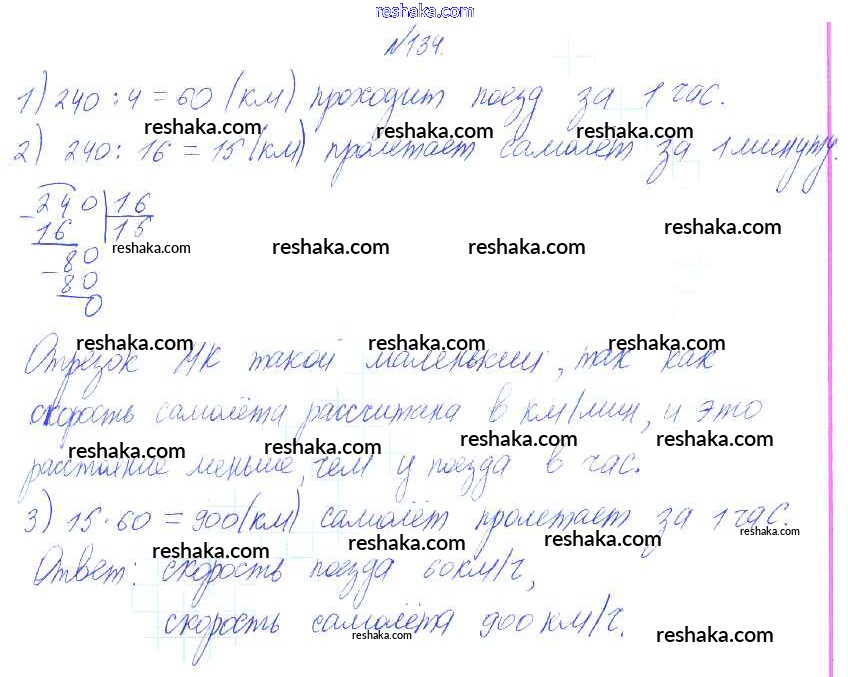 reshaka.com
№134.
1) 240 : 4 = 60 (км) проходит поезд за 1 час.
reshaka.com reshaka.com reshaka.com
2) 240 : 16 = 15 (км) пролетает самолёт за 1 минуту.
240 | 16
16 | 15
80
80
0
reshaka.com reshaka.com reshaka.com reshaka.com
reshaka.com reshaka.com reshaka.com
Отрезок МК такой маленький, так как
скорость самолёта рассчитана в км/мин, и это
reshaka.com reshaka.com reshaka.com reshaka.com
расстояние меньше, чем у поезда в час.
3) 15 · 60 = 900 (км) самолёт пролетает за 1 час.
reshaka.com reshaka.com reshaka.com reshaka.com
Ответ: скорость поезда 60 км/ч,
скорость самолёта 900 км/ч.
reshaka.com reshaka.com